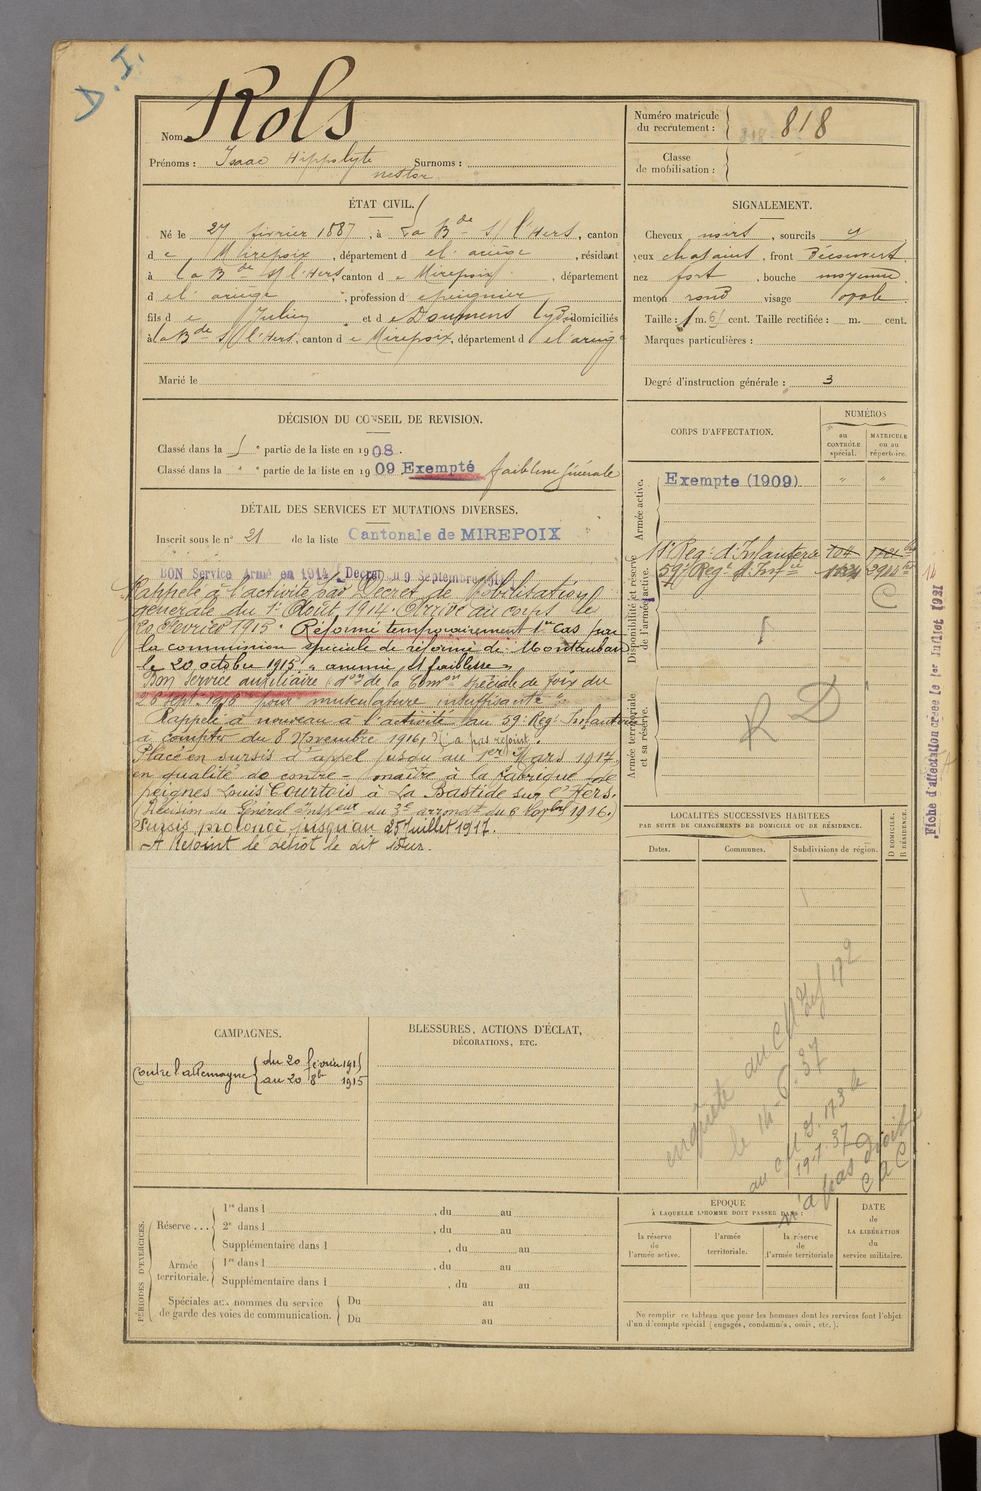 D. I.
Nom Rols
Prénoms : Isaac Hippolyte Surnoms :
nestor
Numéro matricule
du recrutement : 818
Classe
de mobilisation :
ÉTAT CIVIL.
Né le 27 février 1887, à La Bde S/ l'Hers, canton
d e Mirepoix, département d el ariège, résidant
à la Bde S/ l'Hers, canton d e Mirepoix, département
d el ariège, profession d epeignier
fils d e Julien et d e Doumens domiciliés
à la Bde S/ l'Hers, canton d e Mirepoix, département d el ariège
Marié le
SIGNALEMENT.
Cheveux noirs, sourcils y
yeux chatains, front Découvert
nez fort, bouche moyenne
menton rond visage ovale
Taille : 1 m. 61 cent. Taille rectifiée : m. cent.
Marques particulières :
Degré d'instruction générale : 3
DÉCISION DU CONSEIL DE REVISION.
Classé dans la partie de la liste en 1908.
Classé dans la " partie de la liste en 1909 Exempté faiblesse générale
DÉTAIL DES SERVICES ET MUTATIONS DIVERSES.
Inscrit sous le n° 21 de la liste Cantonale de MIREPOIX
BON Service Armé en 1914 Decret du 9 Septembre 1914
Rappelé à l'activité par Décret de Mobilisation
générale du 1er Août 1914. Arrivé au corps le
20 Février 1915. Réformé temporairement 1er cas par
la commission spéciale de réforme de Montauban
le 20 octobre 1915 " anémie et faiblesse "
Bon Service auxiliaire don de la Comon spéciale de Foix du
26 sept. 1916 pour musculature insuffisante "
Rappelé à nouveau à l'activité au 59e Regt Infanterie
à compter du 8 Novembre 1916, N'a pas rejoint.
Placé en sursis d'appel jusqu'au 1er Mars 1917,
en qualité de contre-maître à la fabrique de
peignes Louis Courtois à La Bastide sur l'Hers.
(Décision du Général Inspeur du 3e arrondt du 6 Novbre 1916.)
Sursis prolongé jusqu'au 25 Juillet 1917.
A Rejoint le dépôt le dit jour.
CORPS D'AFFECTATION.
NUMÉROS
au
CONTRÔLE
spécial.
MATRICULE
ou au
répertoire.
Armée active.
Exempte (1909) " "
Disponibilité et réserve
de l'armée active.
Regt d'Infanterie 104
59e Regt d'Infie
C
Armée territoriale
et sa réserve.
R D
Fiche d'affectation créée le 1er Juillet 1921
LOCALITÉS SUCCESSIVES HABITÉES
PAR SUITE DE CHANGEMENTS DE DOMICILE OU DE RÉSIDENCE.
Dates. Communes. Subdivisions de région.
D DOMICILE.
R RÉSIDENCE.
enquête au C M 172
le 14-6-37
au C M J. 173 le
19-7-37
n'a pas droit
C A C
CAMPAGNES.
Contre l'allemagne du 20 février 1915
au 20 8bre 1915
BLESSURES, ACTIONS D'ÉCLAT,
DÉCORATIONS, ETC.
PÉRIODES D'EXERCICES.
Réserve ...
1re dans l , du au
2e dans l , du au
Supplémentaire dans l , du au
Armée
territoriale.
1re dans l , du au
Supplémentaire dans l , du au
Spéciales aux hommes du service
de garde des voies de communication.
Du au
Du au
ÉPOQUE
À LAQUELLE L'HOMME DOIT PASSER DANS :
la réserve
de
l'armée active.
l'armée
territoriale.
la réserve
de
l'armée territoriale
DATE
de
LA LIBÉRATION
du
service militaire.
Ne remplir ce tableau que pour les hommes dont les services font l'objet
d'un décompte spécial (engagés, condamnés, omis, etc.).